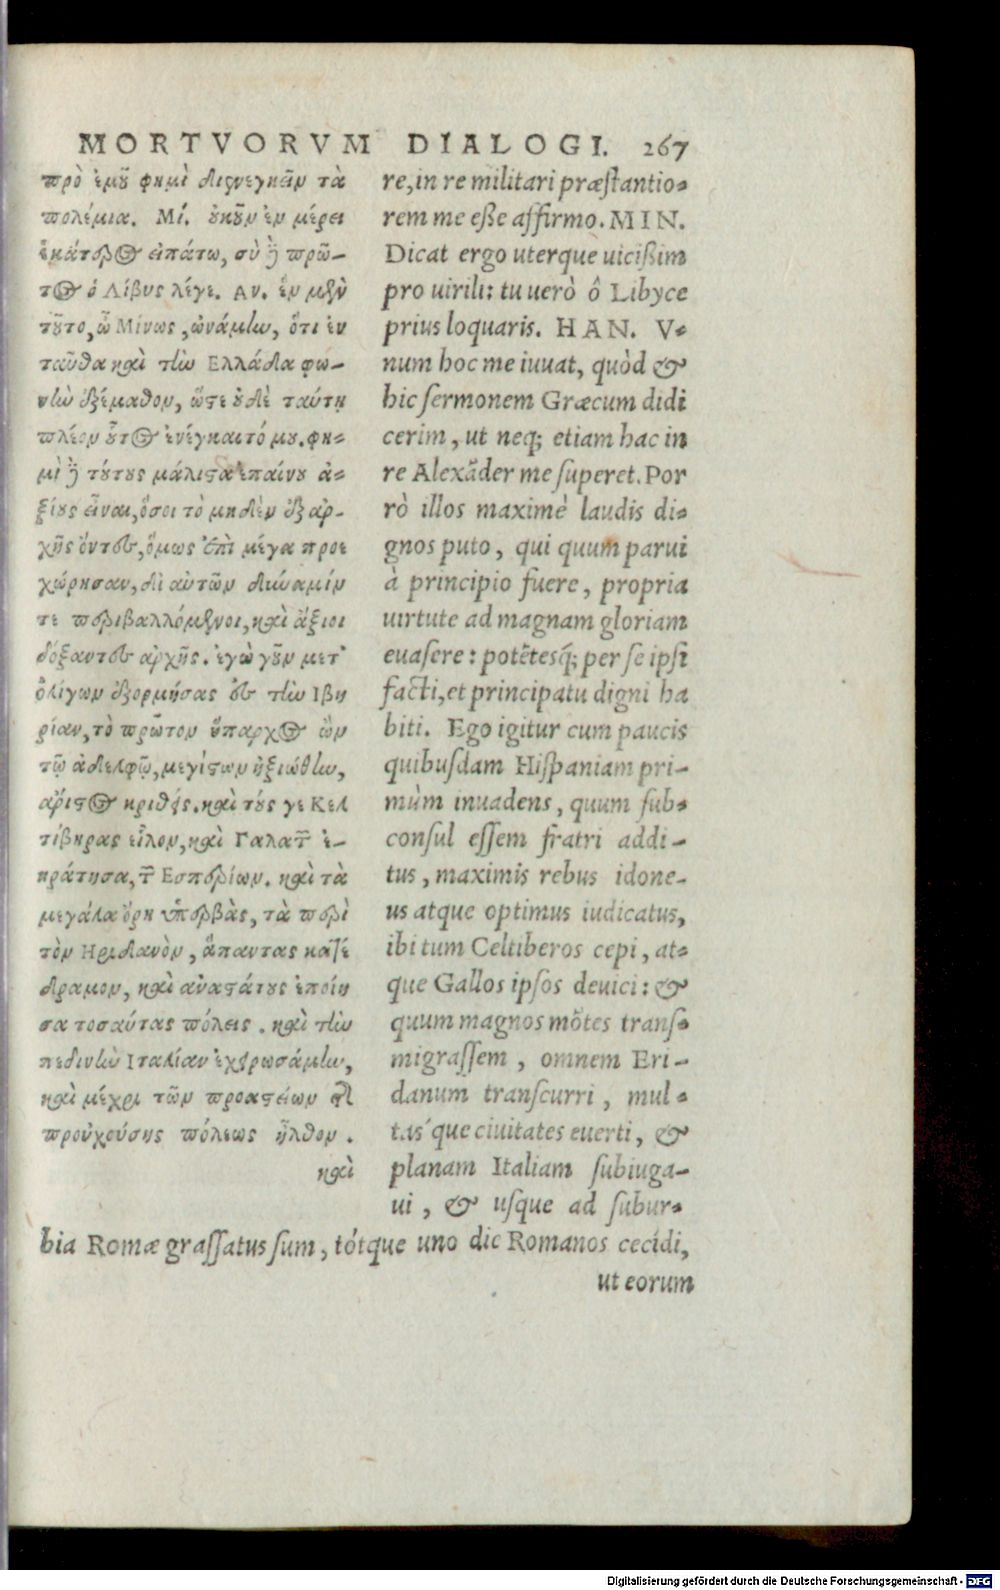 MORTVORVM DIALOGI. 267
πρὸ ἐμοῦ φημὶ διενεγκεῖν τὰ
πολέμια. Μί. οὐκοῦν ἐν μέρει
ἑκάτερος εἰπάτω, σὺ ἢ πρῶ–
τος ὁ Λίβυς λέγε. Αν. ἓν μὲν
τοῦτο, ὦ Μίνως, ὠνάμην, ὅτι ἐν
ταῦθα καὶ τὴν Ελλάδα φω–
νὴν ἐξέμαθον, ὥστε οὐδὲ ταύτη
πλέον οὗτος ἐνέγκαιτό μου. φη-
μὶ ἢ τούτους μάλιστα ἐπαίνου ἀ-
ξίους εἶναι, ὅσοι τὸ μηδὲν ἐξ αρ-
χῆς ὄντες, ὅμως ἐπὶ μέγα προε
χώρησαν, δι αὑτῶν δύναμίν
τε περιβαλλόμενοι, καὶ ἄξιοι
δόξαντες αρχῆς. ἐγὼ γοῦν μετ᾽
ὀλίγων ἐξορμήσας ἐς τὴν Ιβη
ρίαν, τὸ πρῶτον ὕπαρχος ὢν
τῷ ἀδελφῷ, μεγίστων ἠξιώθην,
ἄριστος κριθείς. καὶ τούς γε Κελ
τίβηρας εἷλον, καὶ Γαλατῶν ἐ-
κράτησα, τῶν Εσπερίων. καὶ τὰ
μεγάλα ὄρη ὑπερβὰς, τὰ περὶ
τὸν Ηριδανὸν, ἅπαντας κατέ
δραμον, καὶ ἀναστάτους ἐποίη
σα τοσαύτας πόλεις. καὶ τὴν
πεδινὴν Ιταλίαν ἐχειρωσάμην,
καὶ μέχρι τῶν προαστείων τῆς
προὐχούσης πόλεως ἦλθον.
καὶ
re, in re militari præstantio-
rem me esse affirmo. MIN.
Dicat ergo uterque uicissim
pro uirili: tu uerò ô Libyce
prius loquaris. HAN. V-
num hoc me iuuat, quòd &
hic sermonem Græcum didi
cerim, ut neq; etiam hac in
re Alexãder me superet. Por
rò illos maximè laudis di-
gnos puto, qui quum parui
à principio fuere, propria
uirtute ad magnam gloriam
euasere: potẽtesq́; per se ipsi
facti, et principatu digni ha
biti. Ego igitur cum paucis
quibusdam Hispaniam pri-
mùm inuadens, quum sub-
consul essem fratri addi-
tus, maximis rebus idone-
us atque optimus iudicatus,
ibi tum Celtiberos cepi, at-
que Gallos ipsos deuici: &
quum magnos mõtes trans-
migrassem, omnem Eri-
danum transcurri, mul-
tas´que ciuitates euerti, &
planam Italiam subiuga-
ui, & usque ad subur-
bia Romæ grassatus sum, tótque uno die Romanos cecidi,
ut eorum
Digitalisierung gefördert durch die Deutsche Forschungsgemeinschaft - DFG